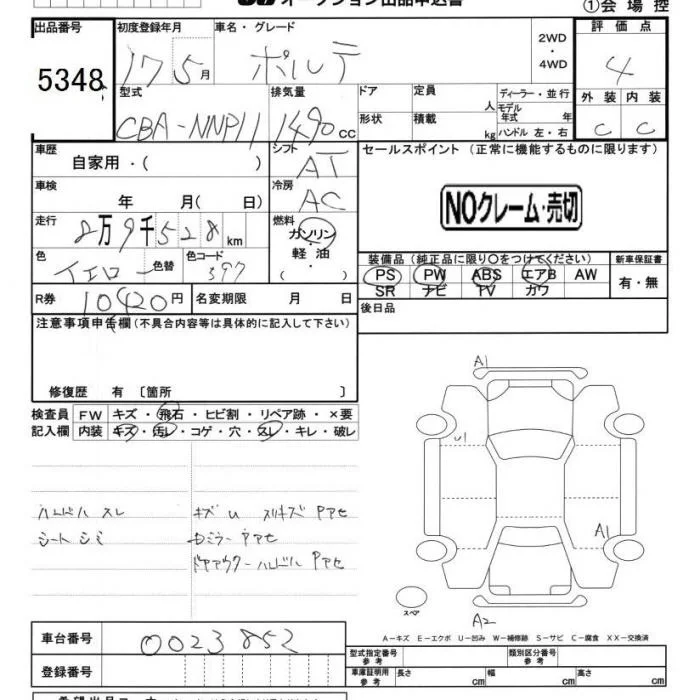 オークション出品申込書
①会場控
出品番号 5348
初度登録年月 17 5月
車名・グレード ポルテ
2WD・4WD
評価点 4
外装 C 内装 C
型式 CBA-NNP11
排気量 1490cc
ドア 定員 人
形状 積載 kg
ディーラー・並行
モデル年式 年
ハンドル 左・右
車歴 自家用・( )
シフト AT
車検 年 月(日)
冷房 AC
走行 8万9千528km
燃料 ガソリン・軽油・( )
色 イエロー 色替 色コード 597
R券 10420円
名変期限 月 日
セールスポイント(正常に機能するものに限ります)
NOクレーム・売切
装備品(純正品に限り○をつけてください)
PS PW ABS エアB AW
SR ナビ TV カワ
新車保証書 有・無
後日品
注意事項申告欄(不具合内容等は具体的に記入して下さい)
修復歴 有 〔箇所 〕
検査員記入欄
FW キズ・飛石・ヒビ割・リペア跡・×要
内装 キズ・汚レ・コゲ・穴・スレ・キレ・破レ
ハンドル スレ
シート シミ
キズ U スリキズ アアセ
ドアミラー アアセ
ドアアウターハンドル アアセ
A1
U1
A1
A2
スペア
A-キズ E-エクボ U-凹み W-補修跡 S-サビ C-腐食 XX-交換済
車台番号 0023852
登録番号
型式指定番号 参考
類別区分番号 参考
車庫証明用 参考
長さ cm 幅 cm 高さ cm
希望出品コーナー